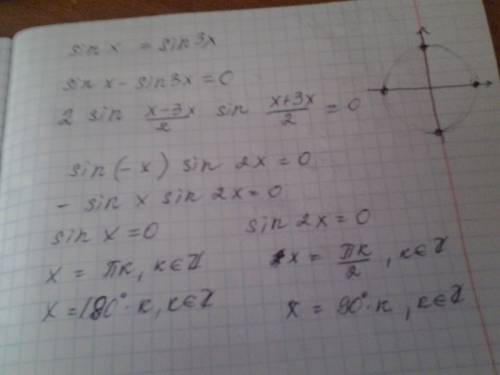 sin x = sin 3x
sin x - sin 3x = 0
2 sin (x-3x)/2 sin (x+3x)/2 = 0
sin(-x) sin 2x = 0
- sin x sin 2x = 0
sin x = 0 sin 2x = 0
x = πк, к∈Z x = πк/2, к∈Z
x = 180°·к, к∈Z x = 90°·к, к∈Z